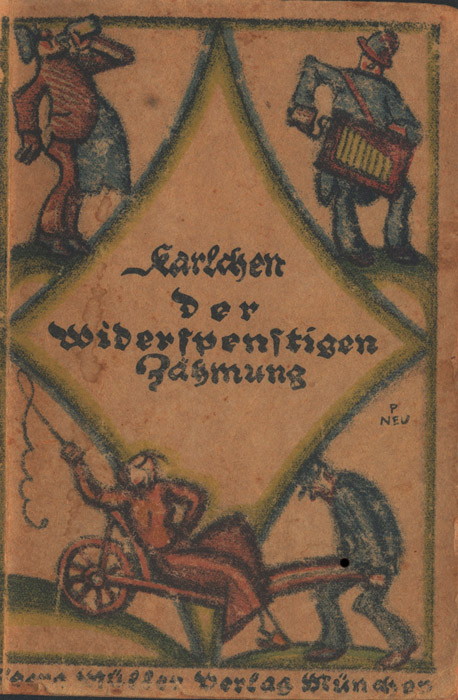 Karlchen
der
Widerspenstigen
Zähmung
P
NEU
Müller Verlag München